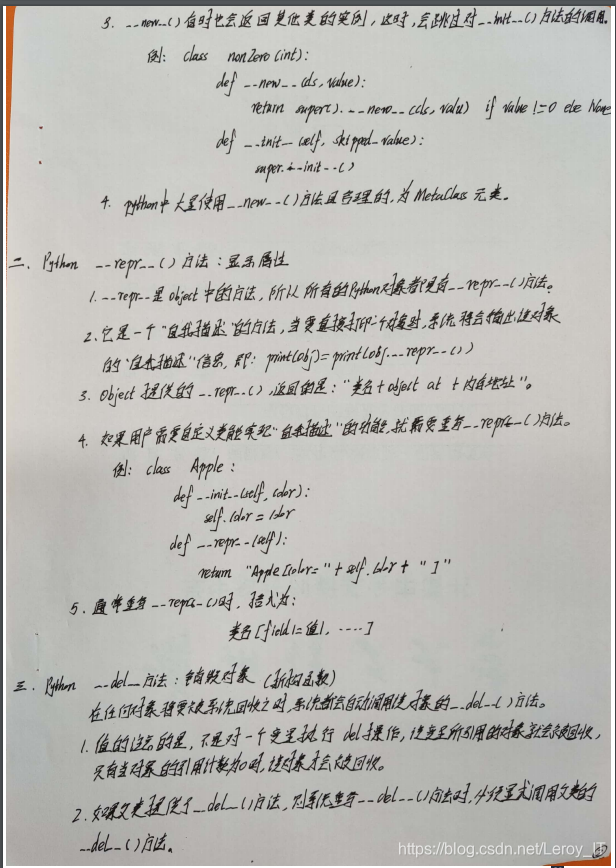 3. __new__()有时也会返回其他类的实例, 此时, 会跳过对__init__()方法的调用。
例: class nonZero(int):
def __new__(cls, value):
return super().__new__(cls, valu) if value != 0 else None
def __init__(self, skipped_value):
super.__init__()
4. python中大量使用__new__()方法且合理的, 为MetaClass 元类。
二、Python __repr__()方法: 显示属性
1. __repr__是object中的方法, 所以所有的Python对象都具有__repr__()方法。
2. 它是一个"自我描述"的方法, 当要直接打印一个对象时, 系统将会输出该对象
的"自我描述"信息, 即: print(obj)=print(obj.__repr__())
3. Object提供的__repr__(), 返回的是: "类名+object at +内存地址"。
4. 如果用户需要自定义类能实现"自我描述"的功能, 就需要重写__repr__()方法。
例: class Apple:
def __init__(self, color):
self.color = color
def __repr__(self):
return "Apple[color=" + self.color + "]"
5. 通常重写__repr__()时, 格式为:
类名[field1=值1, ·····]
三. Python __del__方法: 销毁对象 (析构函数)
在任何对象将要被系统回收之时, 系统都会自动调用该对象的__del__()方法。
1. 值的注意的是, 不是对一个变量执行 del操作, 该变量所引用的对象就会被回收,
只有当对象的引用计数为0时, 该对象才会被回收。
2. 如果父类提供了__del__()方法, 则系统重写__del__()方法时, 必须显式调用父类的
__del__()方法。
https://blog.csdn.net/Leroy_IT